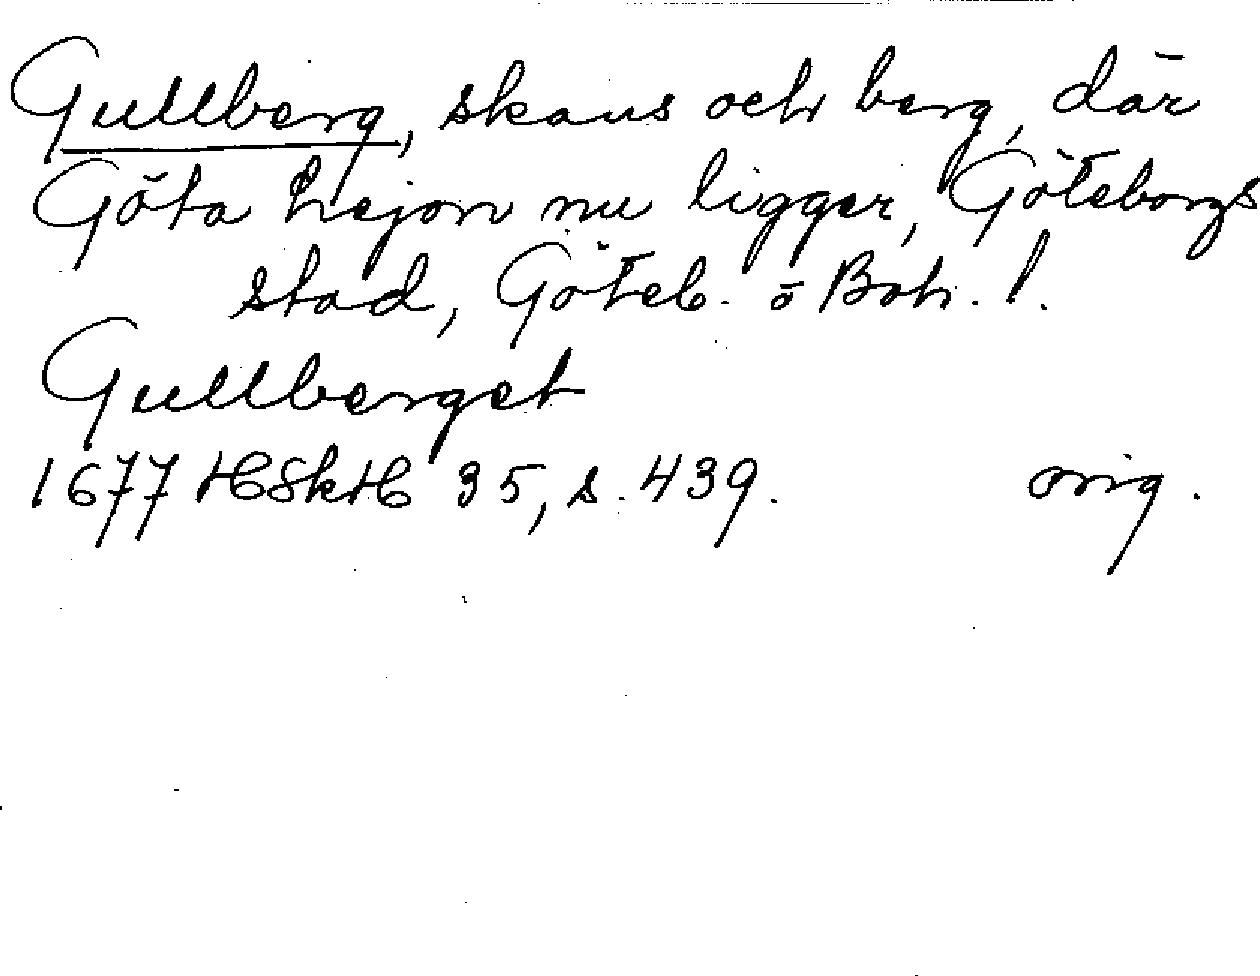 Gullberg, skans och berg, där
Göta Lejon nu ligger, Göteborgs
stad, Göteb. o Boh. l.
Gullberget
1677 HSkH 35, s. 439. orig.